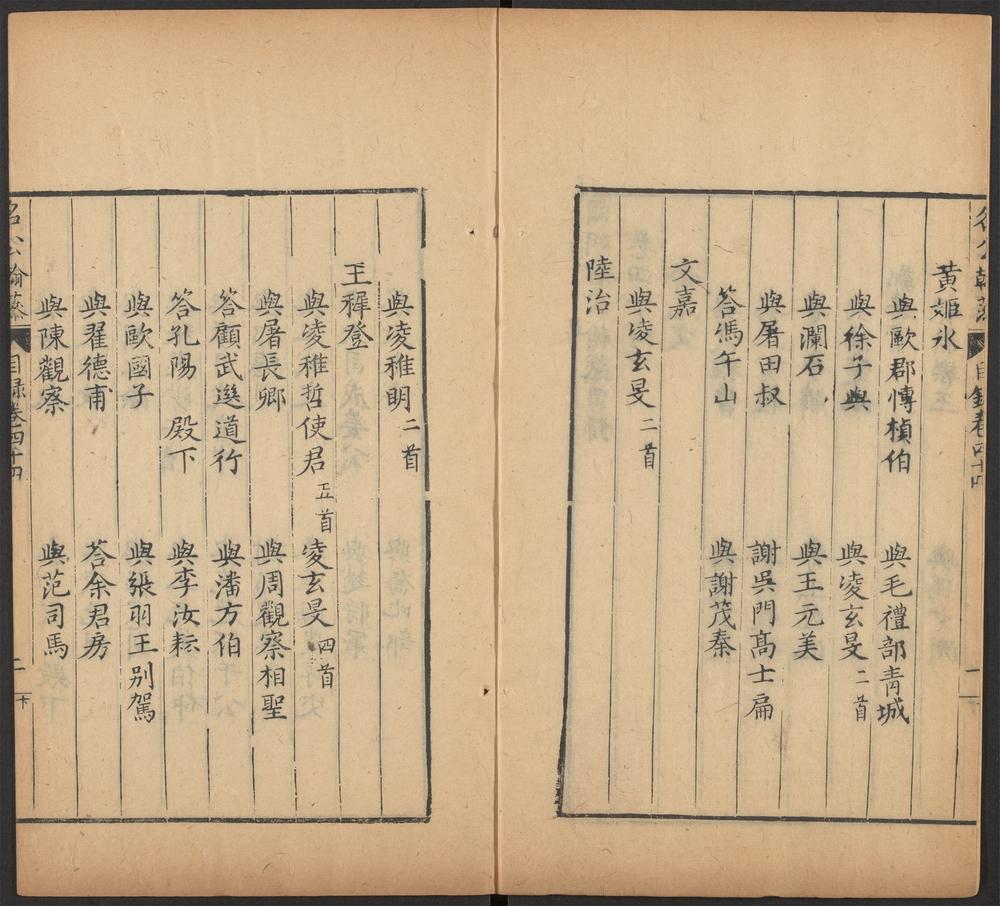 名公翰藻 目錄卷四十四 一
黃姬水
與歐郡愽楨伯 與毛禮部青城
與徐子與 與凌玄旻二首
與瀾石 與王元美
與屠田叔 謝吳門髙士扁
答馮午山 與謝茂秦
文嘉
與凌玄旻二首
陸治
與凌稚明二首
王穉登
與凌稚哲使君五首 凌玄旻四首
與屠長卿 與周觀察相聖
答顧武選道行 與潘方伯
答孔陽 殿下 與李汝耘
與歐國子 與張羽王别駕
與翟德甫 荅余君房
與陳觀察 與范司馬
名公翰藻 目録卷四十四 二 卞